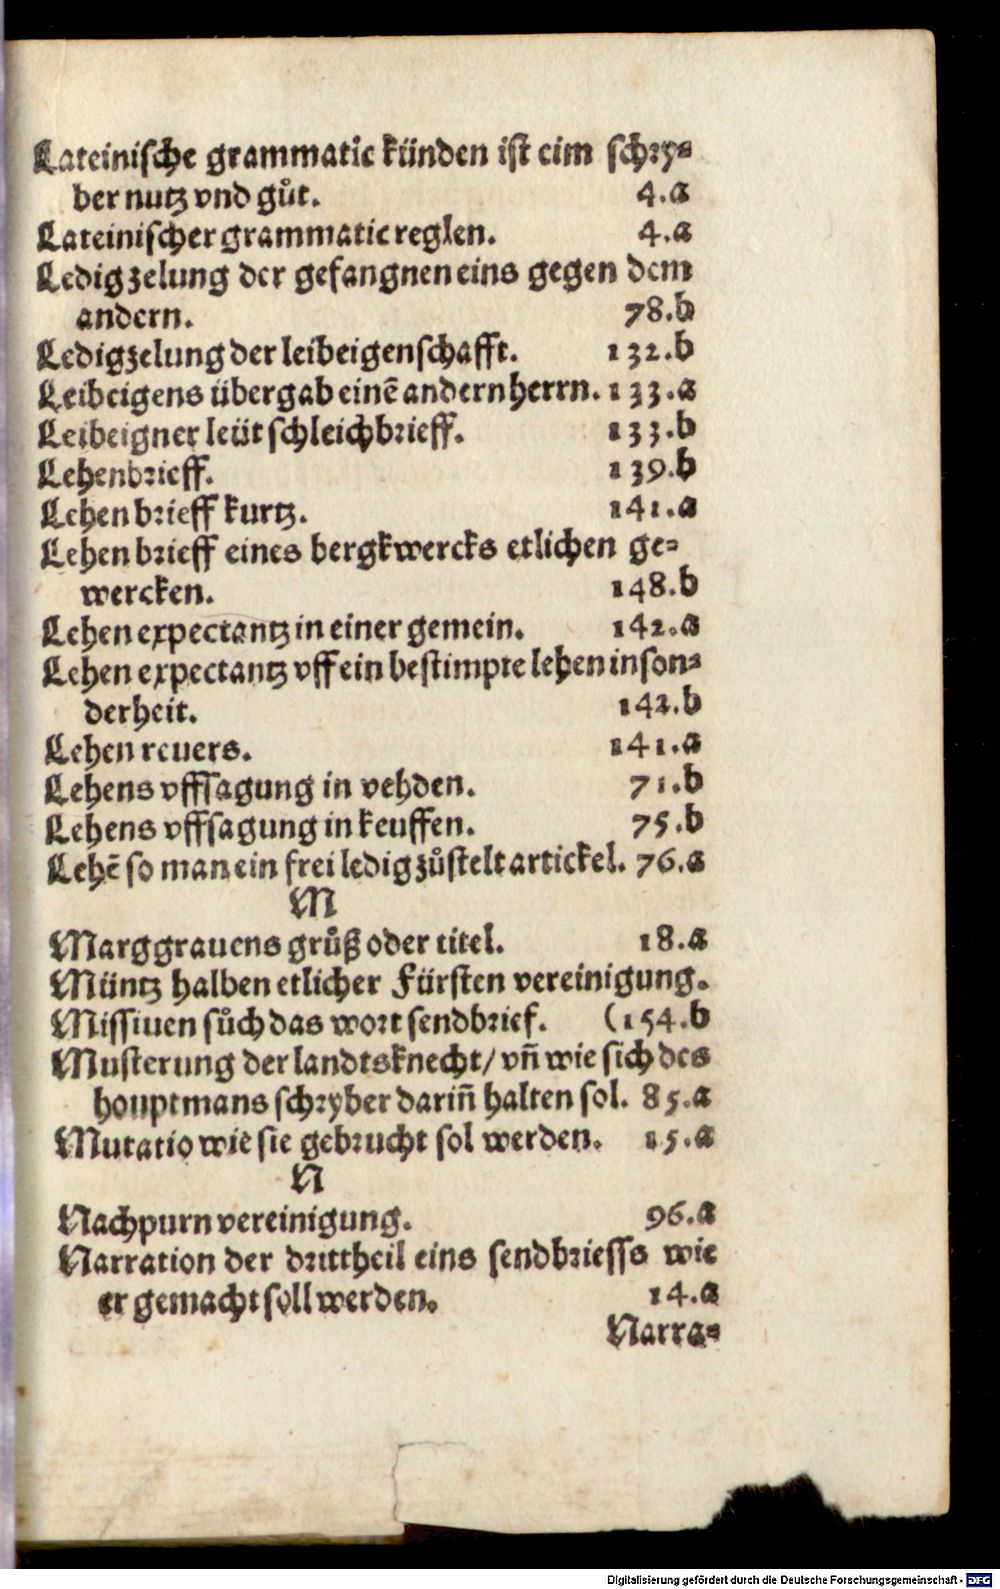 Lateinische grammatic künden ist eim schry=
ber nutz vnd gůt. 4.a
Lateinischer grammatic reglen. 4.a
Ledigzelung der gefangnen eins gegen dem
andern. 78.b
Ledigzelung der leibeigenschafft. 132.b
Leibeigens übergab einẽ andern herrn. 133.a
Leibeigner leüt schleichbrieff. 133.b
Lehenbrieff. 139.b
Lehen brieff kurtz. 141.a
Lehen brieff eines bergkwercks etlichen ge=
wercken. 148.b
Lehen expectantz in einer gemein. 142.a
Lehen expectantz vff ein bestimpte lehen inson=
derheit. 142.b
Lehen reuers. 141.a
Lehens vffsagung in vehden. 71.b
Lehens vffsagung in keuffen. 75.b
Lehẽ so man ein frei ledig zůstelt artickel. 76.a
M
Marggrauens grůß oder titel. 18.a
Müntz halben etlicher Fürsten vereinigung.
Missiuen sůch das wort sendbrief. (154.b
Musterung der landtsknecht/ vñ wie sich des
houptmans schryber dariñ halten sol. 85.a
Mutatio wie sie gebrucht sol werden. 15.a
N
Nachpurn vereinigung. 96.a
Narration der drittheil eins sendbrieffs wie
er gemacht soll werden. 14.a
Narra=
Digitalisierung gefördert durch die Deutsche Forschungsgemeinschaft - DFG